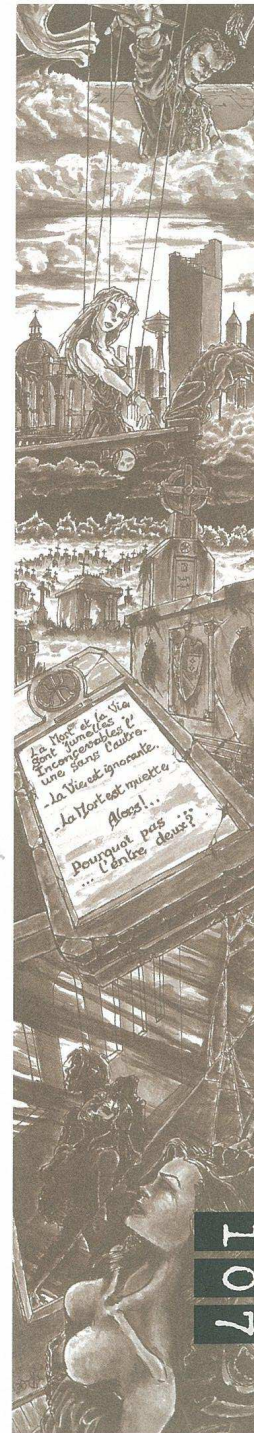 La Mort et la Vie
sont jumelles
Inconcevables l'
une sans l'autre.
-La Vie est ignorante.
-La Mort est muette.
Alors!...
Pourquoi pas ...
... l'entre deux?
107